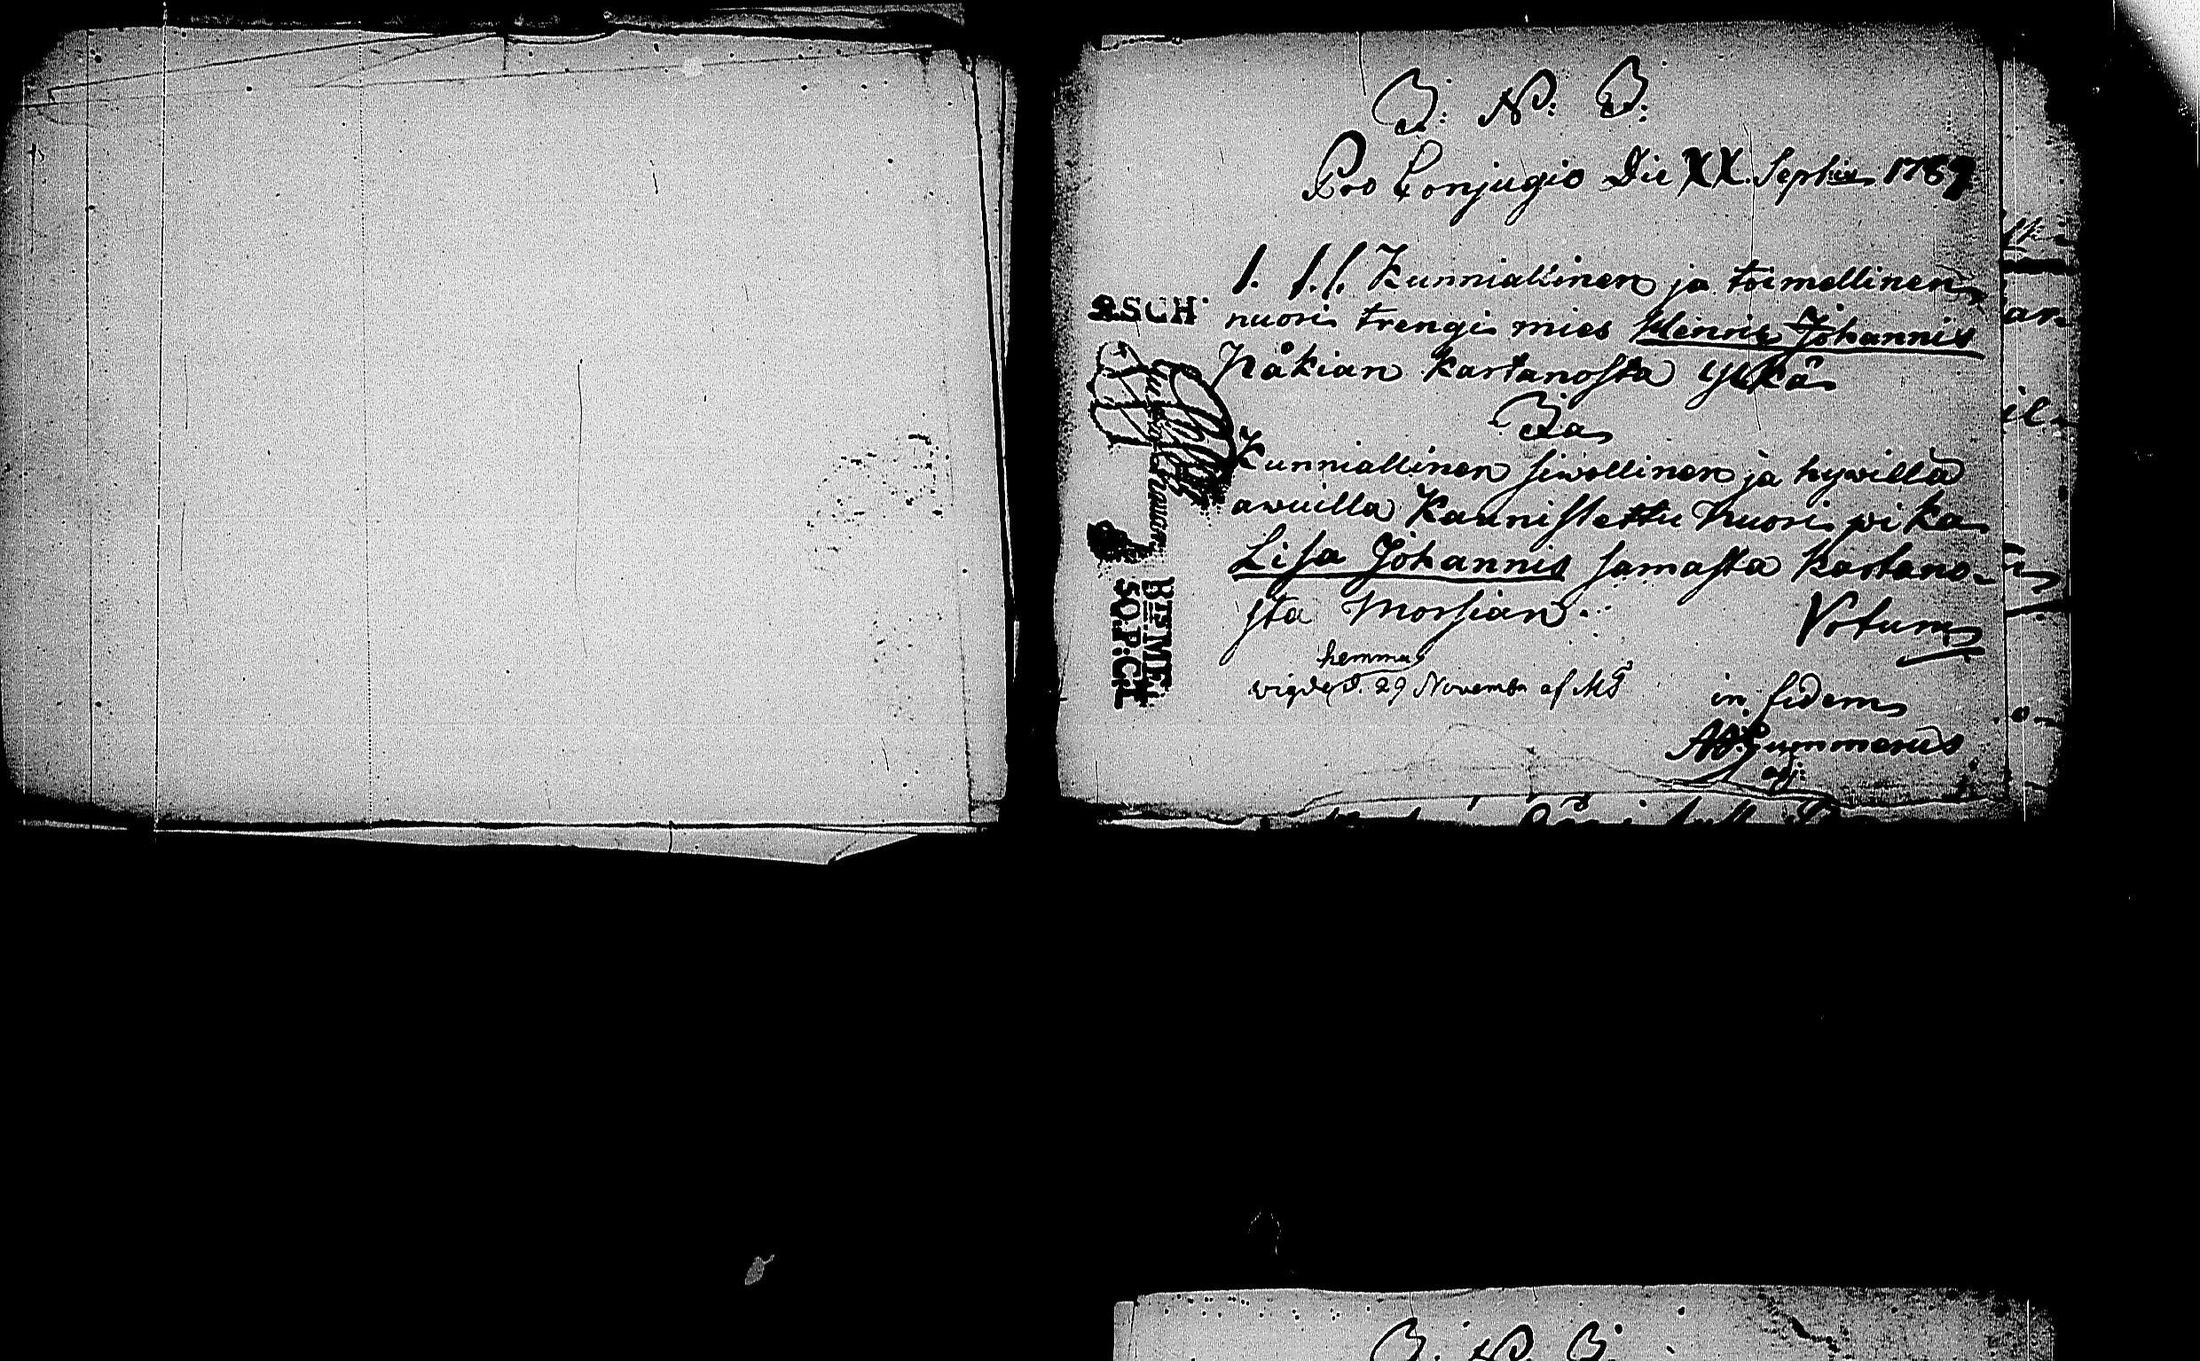 J: N: J:
Pro Conjugio Die XX. Septbr 1789
1. f.f. Kunniallinen ja toimellinen
nuori trengi mies Henric Johannis
Nåkian kartanosta Ylkä
Ja
Kunniallinen siwollinen ja hywillä
awuilla Kaunistettu nuori pika
Lisa Johannis samasta kartano-
sta Morsian.
Votum
hemma
vigde d. 29 Novembr af Mg
in fidem
AGummerus
adj:
SCH
BTE. ME.
SQ.P:CH
J. N. J.